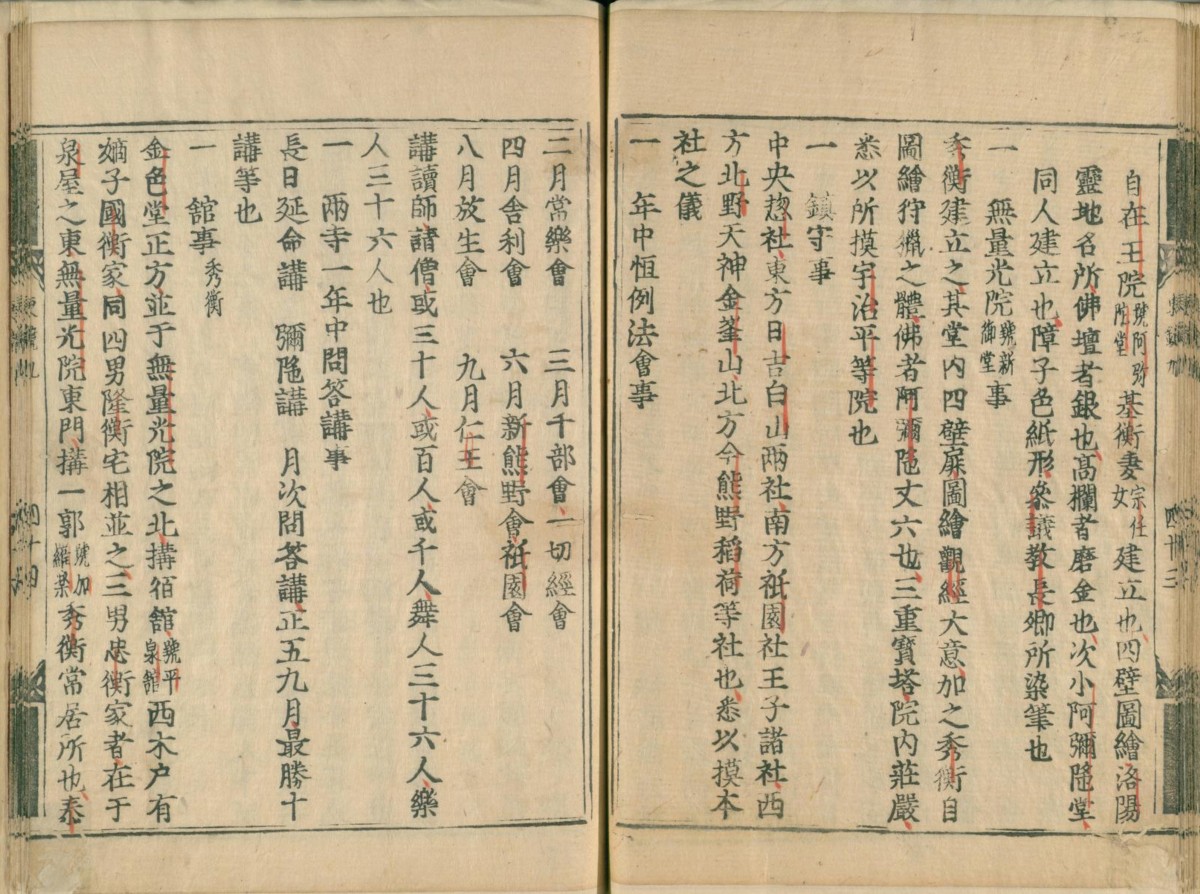 自在王院號阿彌陁堂基衡妻宗任女建立也四壁圖繪洛陽
靈地名所佛壇者銀也髙欄者磨金也次小阿彌陁堂
同人建立也障子色紙形叅議教長卿所染筆也
一　無量光院號新御堂事
秀衡建立之其堂內四壁扉圖繪觀經大意加之秀衡自
圖繪狩獵之體佛者阿彌陁丈六也三重寶塔院內莊嚴
悉以所摸宇治平等院也
一　鎮守事
中央惣社東方日吉白山兩社南方祇園社王子諸社西
方北野天神金峯山北方今熊野稻荷等社也悉以摸本
社之儀
一　年中恒例法會事
二月常樂會　三月千部會一切經會
四月舎利會　六月新熊野會祇園會
八月放生會　九月仁王會
講讀師請僧或三十人或百人或千人舞人三十六人樂
人三十六人也
一　兩寺一年中問答講事
長日延命講　彌陁講　月次問答講正五九月最勝十
講等也
一　舘事秀衡
金色堂正方並于無量光院之北搆宿舘號平泉舘西木戸有
嫡子國衡家同四男隆衡宅相並之三男忠衡家者在于
泉屋之東無量光院東門搆一郭號加羅樂秀衡常居所也泰
四十三
四十四